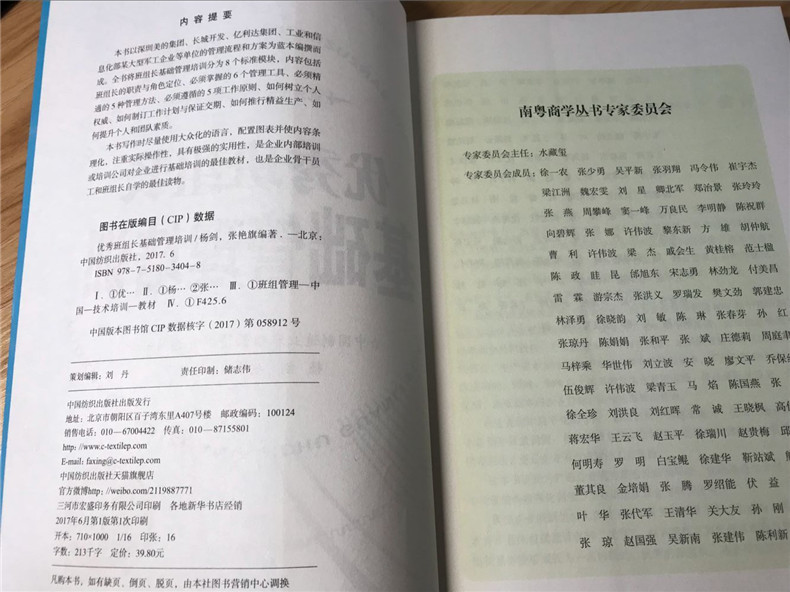 内 容 提 要
本书以深圳美的集团、长城开发、亿利达集团、工业和信
息化部某大型军工企业等单位的管理流程和方案为蓝本编撰而
成。全书将班组长基础管理培训分为8个标准模块，内容包括
班组长的职责与角色定位、必须掌握的6个管理工具、必须精
通的5种管理方法、必须遵循的5项工作原则、如何树立个人
权威、如何制订工作计划与保证交期、如何推行精益生产、如
何提升个人和团队素质。
本书写作时尽量使用大众化的语言，配置图表并使内容条
理化，注重实际操作性，具有极强的实用性，是企业内部培训
或培训公司对企业进行基础培训的最佳教材，也是企业骨干员
工和班组长自学的最佳读物。
图书在版编目（CIP）数据
优秀班组长基础管理培训/杨剑，张艳旗编著．—北京：
中国纺织出版社，2017．6
ISBN 978-7-5180-3404-8
Ⅰ．①优… Ⅱ．①杨… ②张… Ⅲ．①班组管理—中
国—技术培训—教材 Ⅳ．①F425.6
中国版本图书馆CIP数据核字（2017）第058912号
策划编辑：刘 丹 责任印制：储志伟
中国纺织出版社出版发行
地址：北京市朝阳区百子湾东里A407号楼 邮政编码：100124
销售电话：010—67004422 传真：010—87155801
http://www.c-textilep.com
E-mail: faxing@c-textilep.com
中国纺织出版社天猫旗舰店
官方微博http://weibo.com/2119887771
三河市宏盛印务有限公司印刷 各地新华书店经销
2017年6月第1版第1次印刷
开本：710×1000 1/16 印张：16
字数：213千字 定价：39.80元
凡购本书，如有缺页、倒页、脱页，由本社图书营销中心调换
南粤商学丛书专家委员会
专家委员会主任：水藏玺
专家委员会成员：徐一农 张少勇 吴平新 张羽翔 冯令伟 崔宇杰
梁江洲 魏宏雯 刘 星 卿北军 郑治景 张玲玲
张 燕 周攀峰 窦一峰 万良民 李明静 陈祝群
向碧辉 张 娜 许伟波 黎东新 方 雄 胡仲航
曹 利 许伟波 梁 杰 戚会生 黄桂榕 范土楹
陈 政 眭 昆 邰旭东 宋志勇 林劲龙 付美昌
雷 霖 游宗杰 张洪义 罗瑞发 樊文劲 郭建忠
林泽勇 徐晓韵 刘 敏 陈 琳 张春芬 孙 红
张琼丹 陈娟娟 张和平 张 斌 庄德莉 周庭
马梓乘 华世伟 刘立波 安 晓 廖文平 乔保
伍俊辉 许伟波 梁青玉 马 焰 陈国燕 张
徐全珍 刘洪良 刘红晖 常 诚 王晓枫 高
蒋宏华 王云飞 赵玉平 徐瑞川 赵贵梅 邱
何明寿 罗 明 白宝鲲 徐建华 靳站斌
董其良 金培娟 张 腾 罗绍能 伏 益
叶 华 张代军 王清华 关大友 孙 刚
张 琼 赵国强 吴新南 张建伟 陈利新